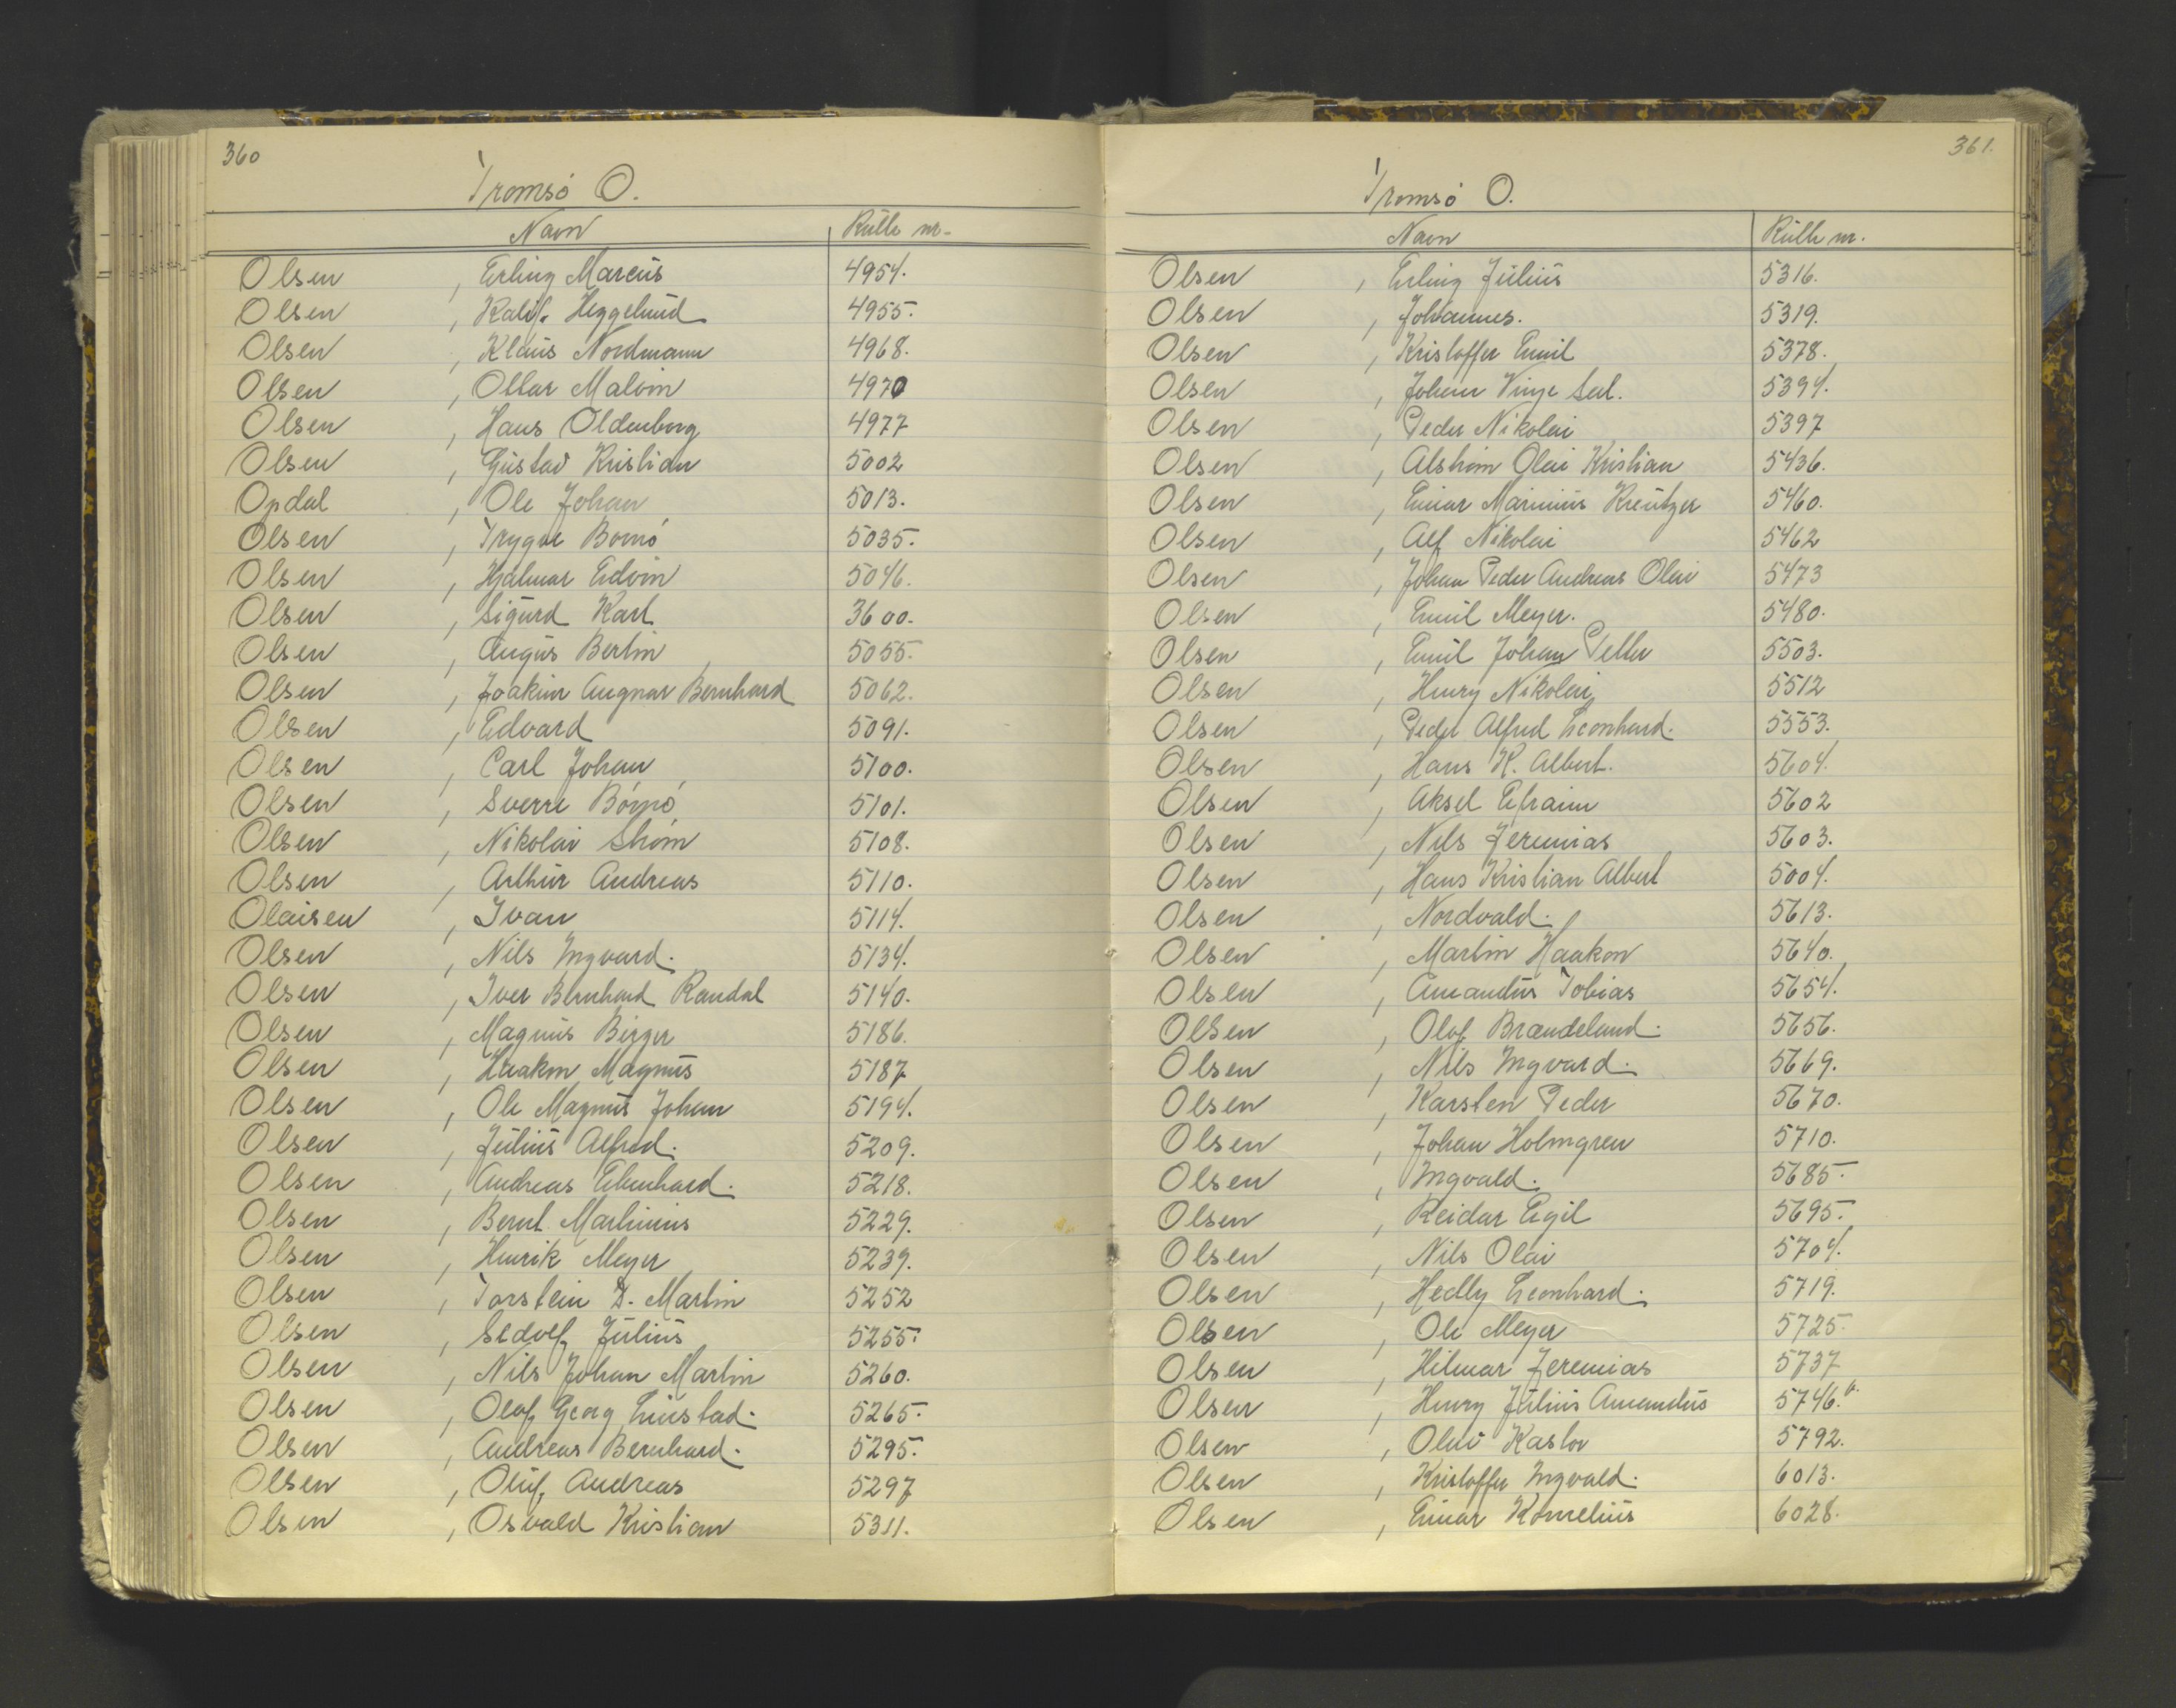 360
Tromsö O.
Navn Rulle nr.
Olsen , Erling Marcus 4954.
Olsen , Ralf. Heggelund 4955.
Olsen , Klaus Nordmann 4968.
Olsen , Ottar Malvin 4970
Olsen , Hans Oldenborg 4977
Olsen , Gustav Kristian 5002
Opdal , Ole Johan 5013.
Olsen , Trygve Bomö 5035.
Olsen , Hjalmar Edvin 5046.
Olsen , Sigurd Karl 3600.
Olsen , Angus Bertin 5055.
Olsen , Joakim Augnar Bernhard 5062.
Olsen , Edvard 5091.
Olsen , Carl Johan 5100.
Olsen , Sverre Bómö 5101.
Olsen , Nikolai Ström 5108.
Olsen , Arthur Andreas 5110.
Olaisen , Ivan 5114.
Olsen , Nils Ingvard. 5134.
Olsen , Iver Bernhard Randal 5140.
Olsen , Magnus Birger 5186.
Olsen , Haakon Magnus 5187
Olsen , Ole Magnus Johan 5194.
Olsen , Julius Alfred. 5209.
Olsen , Andreas Edenhard. 5218.
Olsen , Bernt Martinius 5229.
Olsen , Henrik Meyer 5239.
Olsen , Torstein D. Martin 5252
Olsen , Sedolf Julius 5255.
Olsen , Nils Johan Martin 5260.
Olsen , Olaf Georg Einstad. 5265.
Olsen , Andreas Bernhard. 5295.
Olsen , Oluf Andreas 5297
Olsen , Osvald Kristian 5311.
361.
Tromsö O.
Navn Rulle nr.
Olsen , Erling Julius 5316.
Olsen , Johannes. 5319.
Olsen , Kristoffer Emil 5378.
Olsen , Johan Vinje 5394.
Olsen , Peder Nikolai 5397
Olsen , Alström Olai Kristian 5436.
Olsen , Einar Marinius Kreutzer 5460.
Olsen , Alf Nikolai 5462
Olsen , Johan Peder Andreas Olai 5473
Olsen , Emil Meyer. 5480.
Olsen , Emil Johan Petter 5503.
Olsen , Henry Nikolai 5512
Olsen , Peder Alfred Leonhard. 5553.
Olsen , Hans K. Albert. 5604.
Olsen , Aksel Efraim 5602
Olsen , Nils Jeremias 5603.
Olsen , Hans Kristian Albert 5004.
Olsen , Nordvald. 5613.
Olsen , Martin Haakon 5640.
Olsen , Amandus Tobias 5654.
Olsen , Olof Brændelund. 5656.
Olsen , Nils Ingvard. 5669.
Olsen , Karsten Peder 5670.
Olsen , Johan Holmgren 5710.
Olsen , Ingvald. 5685.
Olsen , Reidar Egil 5695.
Olsen , Nils Olai 5704.
Olsen , Hedly Leonhard. 5719.
Olsen , Ole Meyer 5725.
Olsen , Hilmar Jeremias 5737
Olsen , Henry Julius Amandus 5746.
Olsen , Olav Kaslov 5792.
Olsen , Kristoffer Ingvald. 6013.
Olsen , Einar Kornelius 6028.